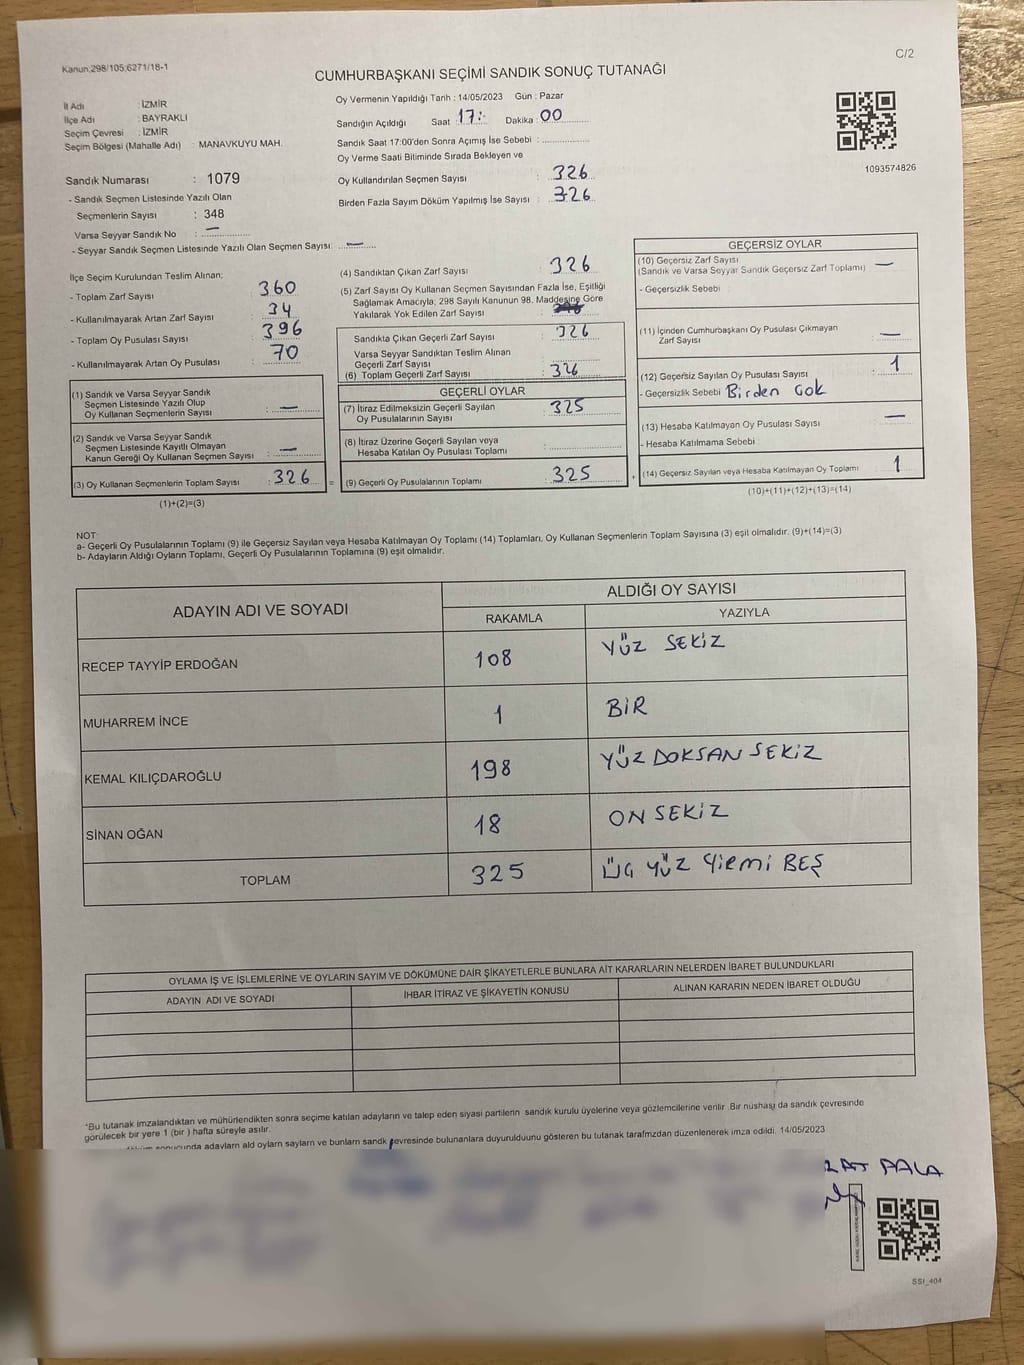 Kanun:298/105;6271/18-1
C/2
CUMHURBAŞKANI SEÇİMİ SANDIK SONUÇ TUTANAĞI
İl Adı : İZMİR
İlçe Adı : BAYRAKLI
Seçim Çevresi : İZMİR
Seçim Bölgesi (Mahalle Adı) : MANAVKUYU MAH.
Sandık Numarası : 1079
- Sandık Seçmen Listesinde Yazılı Olan
Seçmenlerin Sayısı : 348
Varsa Seyyar Sandık No : —
- Seyyar Sandık Seçmen Listesinde Yazılı Olan Seçmen Sayısı: —
Oy Vermenin Yapıldığı Tarih : 14/05/2023 Gün : Pazar
Sandığın Açıldığı Saat 17:- Dakika : 00
Sandık Saat 17:00'den Sonra Açımış İse Sebebi :
Oy Verme Saati Bitiminde Sırada Bekleyen ve
Oy Kullandırılan Seçmen Sayısı : 326
Birden Fazla Sayım Döküm Yapılmış İse Sayısı : 326
1093574826
İlçe Seçim Kurulundan Teslim Alınan;
- Toplam Zarf Sayısı : 360
- Kullanılmayarak Artan Zarf Sayısı : 34
- Toplam Oy Pusulası Sayısı : 396
- Kullanılmayarak Artan Oy Pusulası : 70
(1) Sandık ve Varsa Seyyar Sandık
Seçmen Listesinde Yazılı Olup
Oy Kullanan Seçmenlerin Sayısı : —
(2) Sandık ve Varsa Seyyar Sandık
Seçmen Listesinde Kayıtlı Olmayan
Kanun Gereği Oy Kullanan Seçmen Sayısı : —
(3) Oy Kullanan Seçmenlerin Toplam Sayısı : 326
(1)+(2)=(3)
(4) Sandıktan Çıkan Zarf Sayısı : 326
(5) Zarf Sayısı Oy Kullanan Seçmen Sayısından Fazla İse, Eşitliği
Sağlamak Amacıyla; 298 Sayılı Kanunun 98. Maddesine Göre
Yakılarak Yok Edilen Zarf Sayısı :
Sandıkta Çıkan Geçerli Zarf Sayısı : 326
Varsa Seyyar Sandıktan Teslim Alınan
Geçerli Zarf Sayısı :
(6) Toplam Geçerli Zarf Sayısı : 326
GEÇERLİ OYLAR
(7) İtiraz Edilmeksizin Geçerli Sayılan
Oy Pusulalarının Sayısı : 325
(8) İtiraz Üzerine Geçerli Sayılan veya
Hesaba Katılan Oy Pusulası Toplamı :
= (9) Geçerli Oy Pusulalarının Toplamı : 325 +
GEÇERSİZ OYLAR
(10) Geçersiz Zarf Sayısı : —
(Sandık ve Varsa Seyyar Sandık Geçersiz Zarf Toplamı)
- Geçersizlik Sebebi :
(11) İçinden Cumhurbaşkanı Oy Pusulası Çıkmayan
Zarf Sayısı : —
(12) Geçersiz Sayılan Oy Pusulası Sayısı : 1
- Geçersizlik Sebebi Birden Çok
(13) Hesaba Katılmayan Oy Pusulası Sayısı : —
- Hesaba Katılmama Sebebi :
(14) Geçersiz Sayılan veya Hesaba Katılmayan Oy Toplamı : 1
(10)+(11)+(12)+(13)=(14)
NOT:
a- Geçerli Oy Pusulalarının Toplamı (9) ile Geçersiz Sayılan veya Hesaba Katılmayan Oy Toplamı (14) Toplamları, Oy Kullanan Seçmenlerin Toplam Sayısına (3) eşit olmalıdır. (9)+(14)=(3)
b- Adayların Aldığı Oyların Toplamı, Geçerli Oy Pusulalarının Toplamına (9) eşit olmalıdır.
ADAYIN ADI VE SOYADI ALDIĞI OY SAYISI
RAKAMLA YAZIYLA
RECEP TAYYİP ERDOĞAN 108 YÜZ SEKİZ
MUHARREM İNCE 1 BİR
KEMAL KILIÇDAROĞLU 198 YÜZ DOKSAN SEKİZ
SİNAN OĞAN 18 ON SEKİZ
TOPLAM 325 ÜÇ YÜZ YİRMİ BEŞ
OYLAMA İŞ VE İŞLEMLERİNE VE OYLARIN SAYIM VE DÖKÜMÜNE DAİR ŞİKAYETLERLE BUNLARA AİT KARARLARIN NELERDEN İBARET BULUNDUKLARI
ADAYIN ADI VE SOYADI İHBAR İTİRAZ VE ŞİKAYETİN KONUSU ALINAN KARARIN NEDEN İBARET OLDUĞU
*Bu tutanak imzalandıktan ve mühürlendikten sonra seçime katılan adayların ve talep eden siyasi partilerin sandık kurulu üyelerine veya gözlemcilerine verilir. Bir nüshası da sandık çevresinde
görülecek bir yere 1 (bir ) hafta süreyle asılır.
adayların ald oyların sayların ve bunların sandk çevresinde bulunanlara duyurulduunu gösteren bu tutanak tarafmzdan düzenlenerek imza edildi. 14/05/2023
PALA
SSI_404